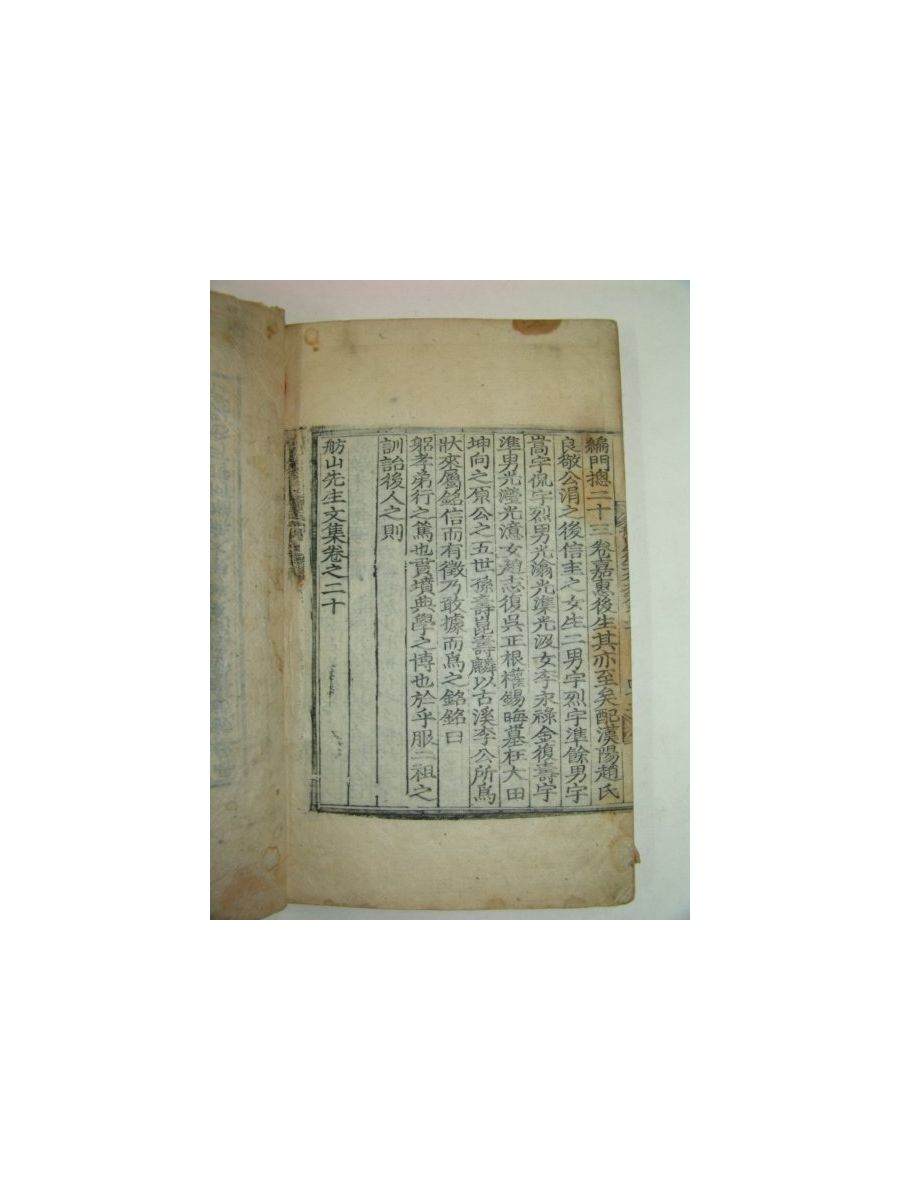 編門摠二十三卷嘉惠後生其亦至矣配漢陽趙氏
良敬公涓之後信主之女生二男宇烈宇準餘男宇
嵩宇侃宇烈男光瀹光準光汲女李永祿金復壽宇
準男光瀅光濾女趙志復吳正根權錫晦墓在大田
坤向之原公之五世孫壽崑壽麟以古溪李公所爲
狀來屬銘信而有徵乃敢據而爲之銘銘曰
躬孝弟行之篤也賁墳典學之博也於乎服二祖之
訓詒後人之則
舫山先生文集卷之二十